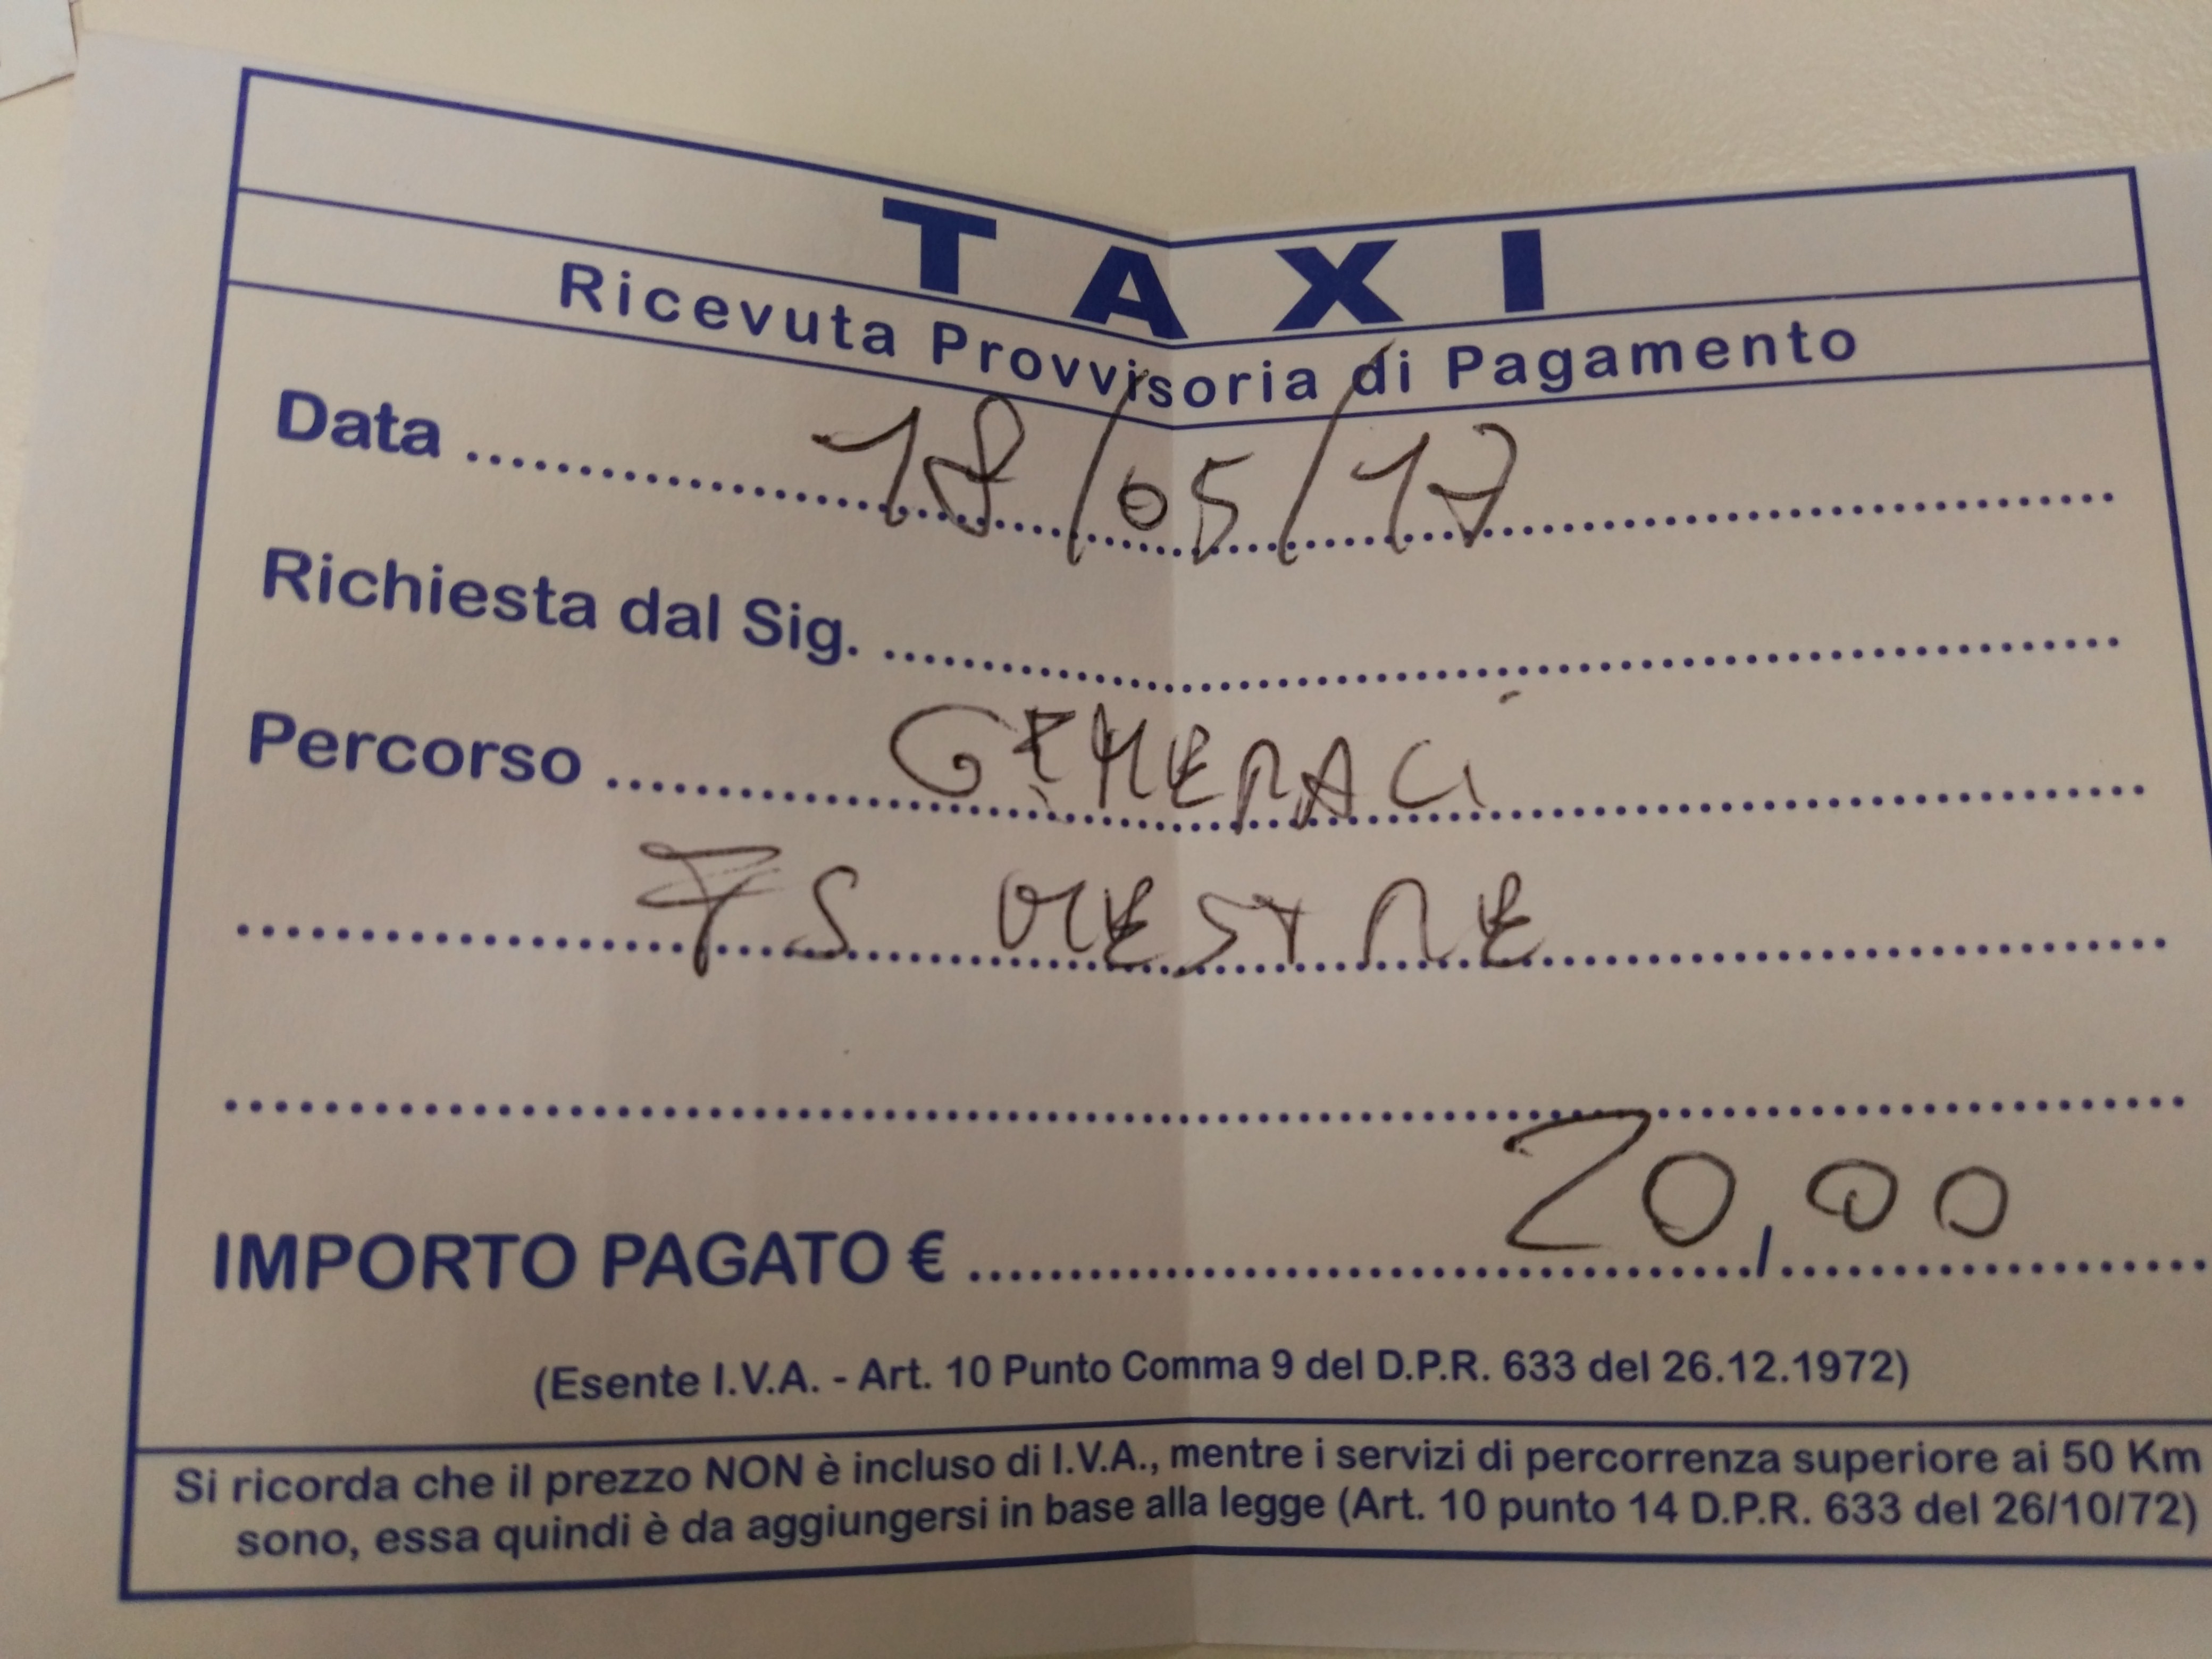 TAXI
Ricevuta Provvisoria di Pagamento
Data 18/05/17
Richiesta dal Sig.
Percorso GENERALI
FS MESTRE
IMPORTO PAGATO € 20,00
(Esente I.V.A. - Art. 10 Punto Comma 9 del D.P.R. 633 del 26.12.1972)
Si ricorda che il prezzo NON è incluso di I.V.A., mentre i servizi di percorrenza superiore ai 50 Km
sono, essa quindi è da aggiungersi in base alla legge (Art. 10 punto 14 D.P.R. 633 del 26/10/72)